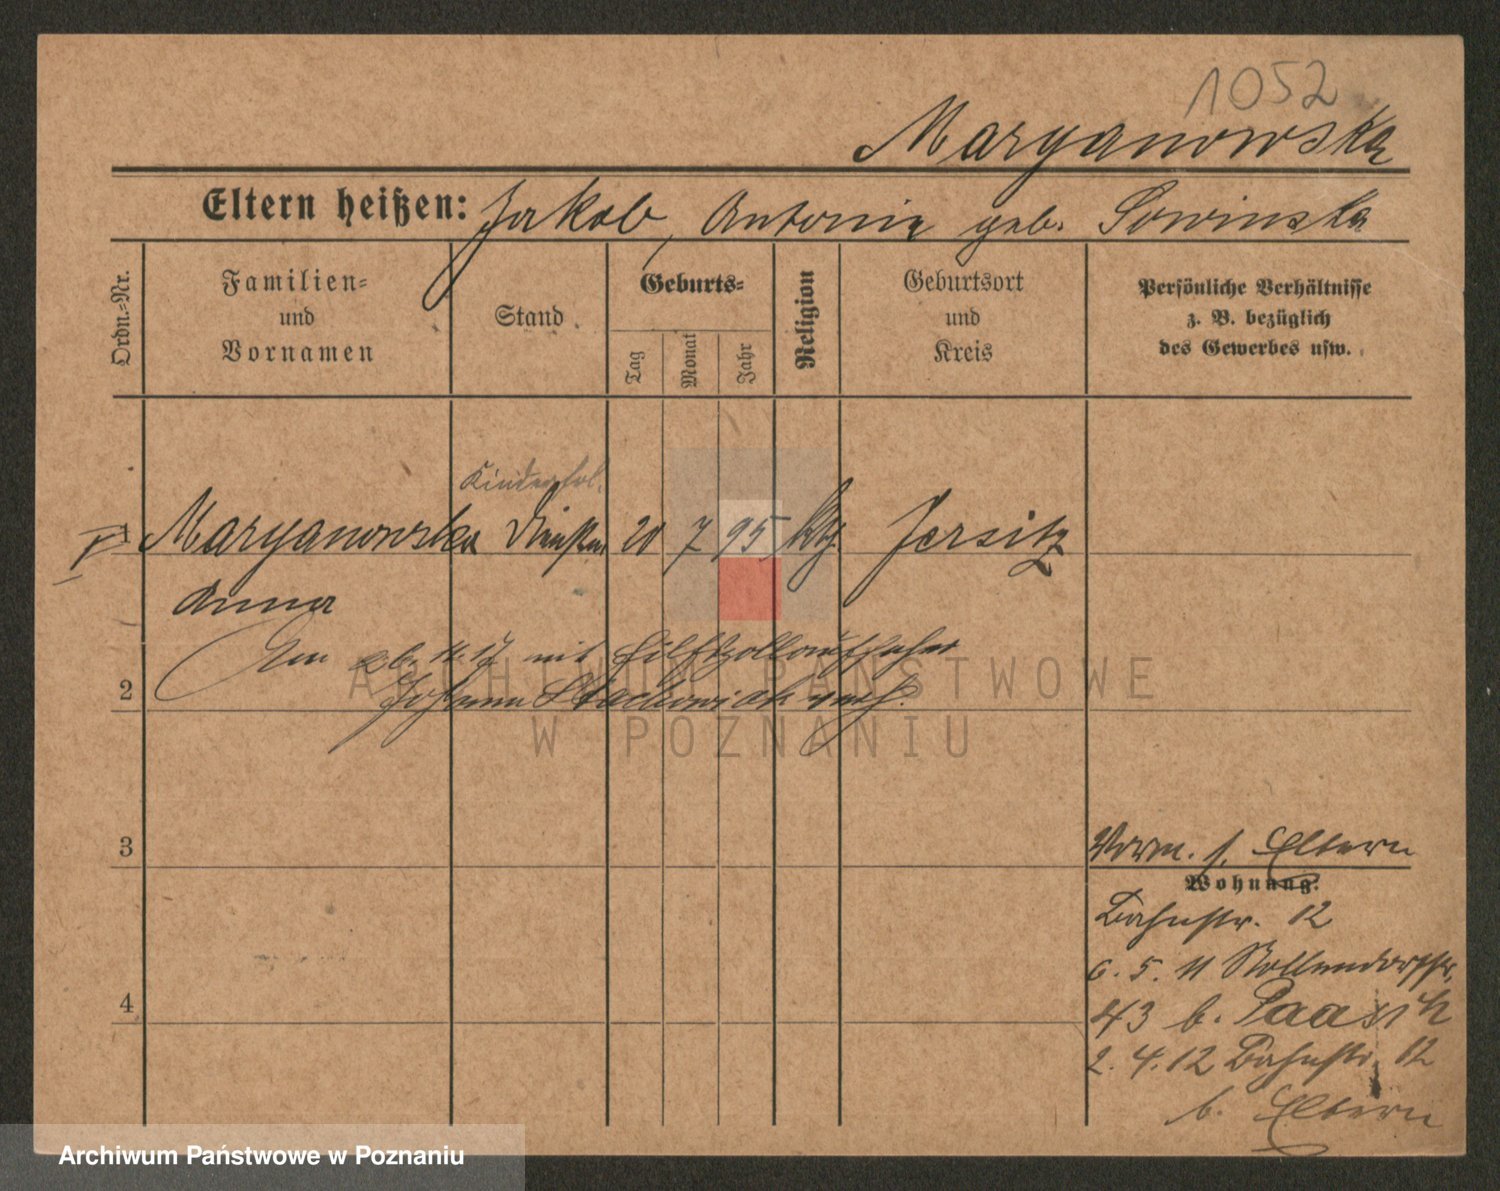 1052
Maryanowska
Eltern heißen: Jakob, Antonie geb. Sowinska
Ordn.-Nr.
Familien-
und
Vornamen
Stand
Geburts-
Tag
Monat
Jahr
Religion
Geburtsort
und
Kreis
Persönliche Verhältnisse
z. B. bezüglich
des Gewerbes usw.
1 Maryanowska 20 7 95 kth. Jersitz
Anna
Am 26. 11. 17 mit Hilfszollaufseher
2 Johann Stachowiak verh.
3
4
Vorm. s. Eltern
Wohnung:
Bahnstr. 12
6. 5. 11 Nollendorffstr.
43 b. Paasch
2. 4. 12 Bahnstr. 12
b. Eltern
ARCHIWUM PAŃSTWOWE
W POZNANIU
Archiwum Państwowe w Poznaniu